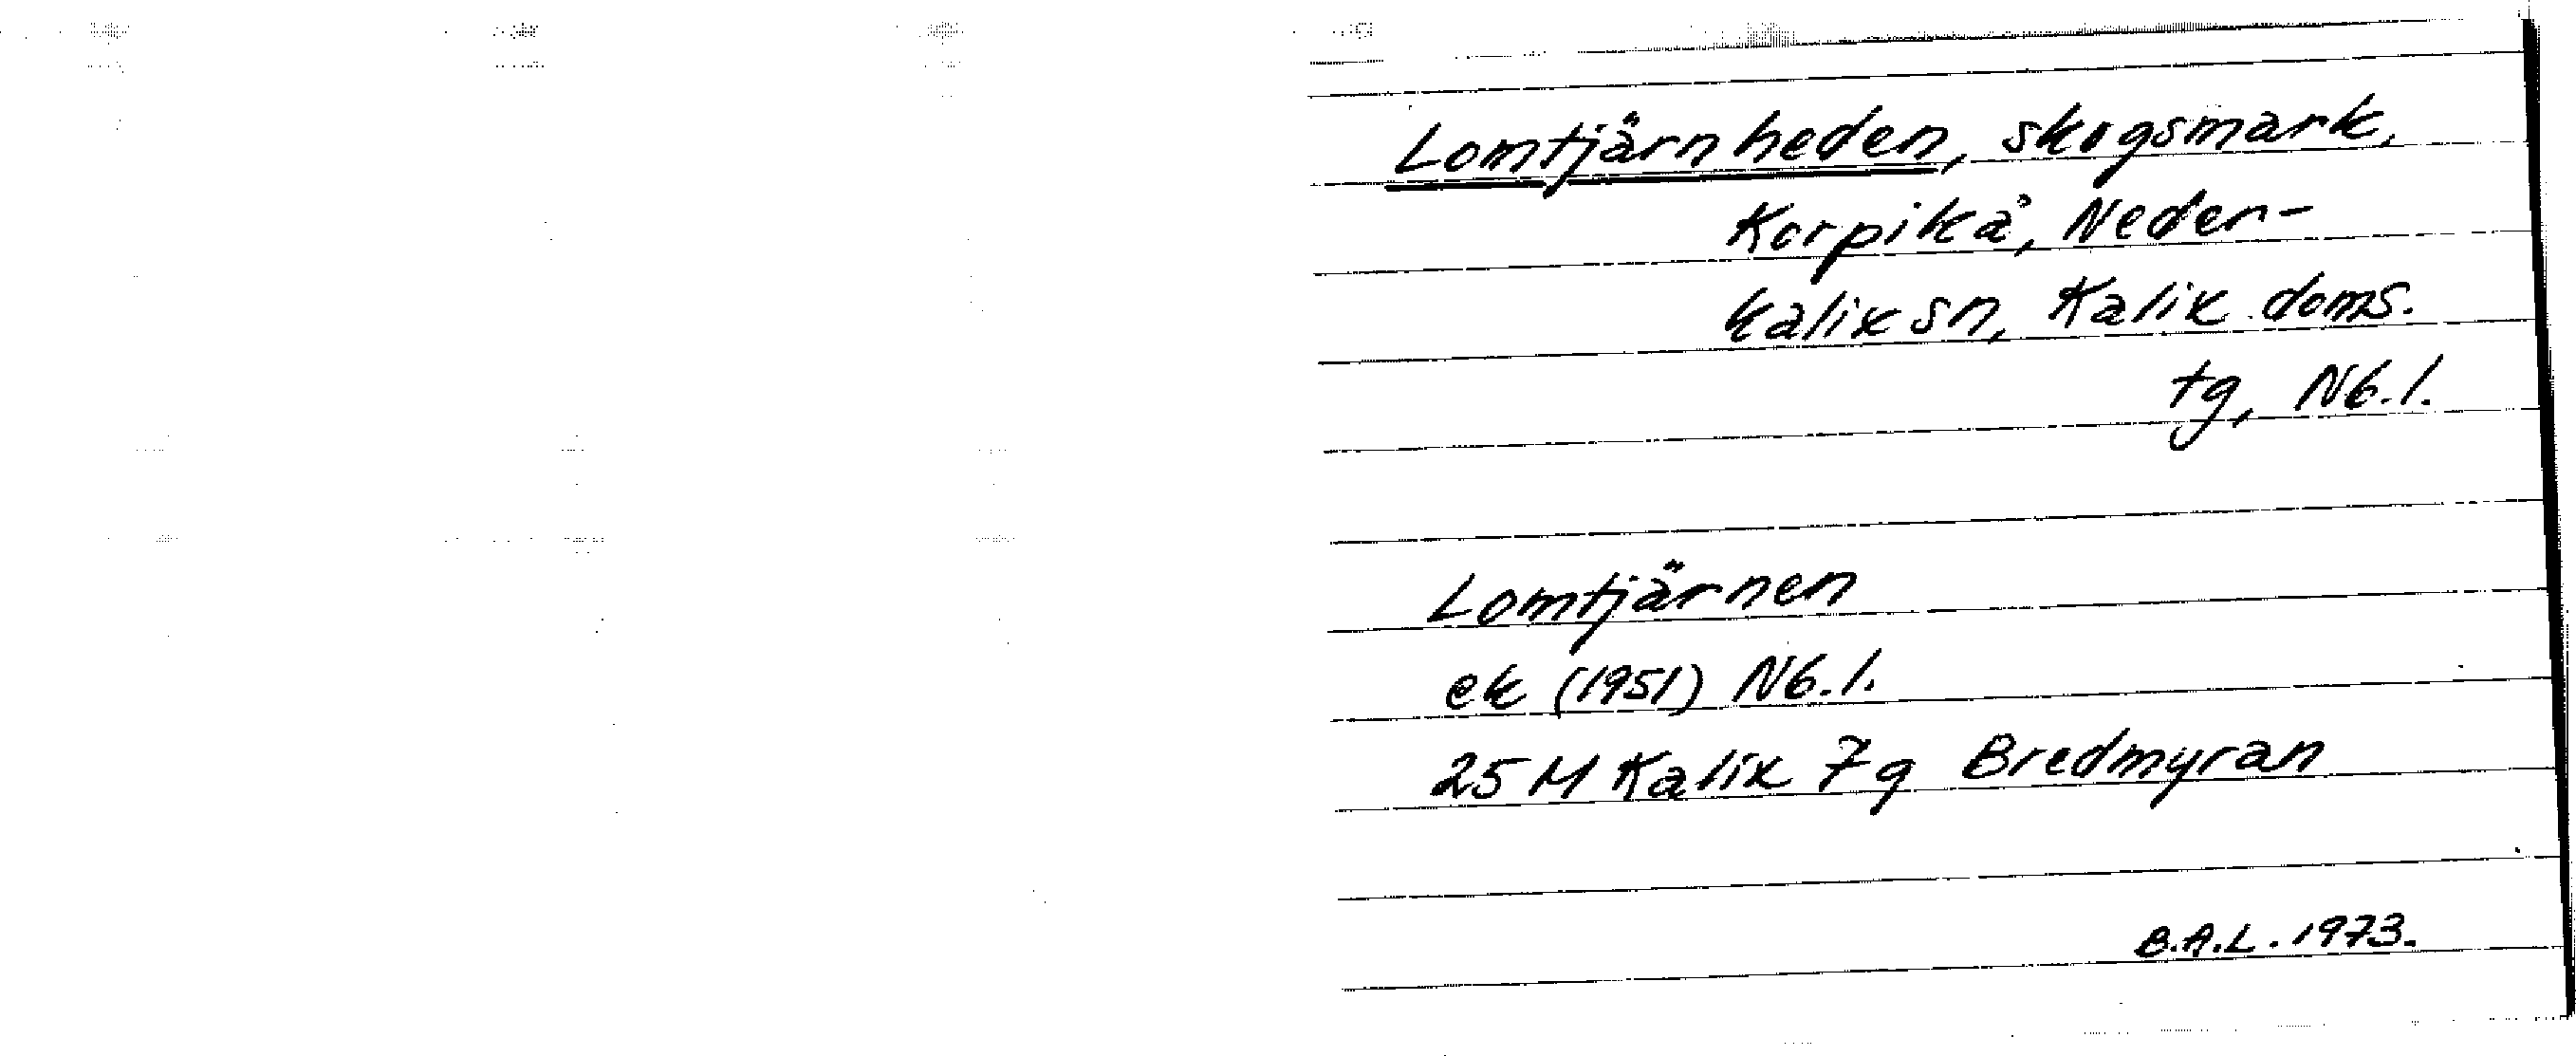 Lomtjärnheden, skogsmark,
Korpikå, Neder-
kalix sn, Kalix doms.
tg, Nb.l.
Lomtjärnen
ek (1951) Nb.l.
25 M Kalix 7g Bredmyran
B.A.L. 1973.